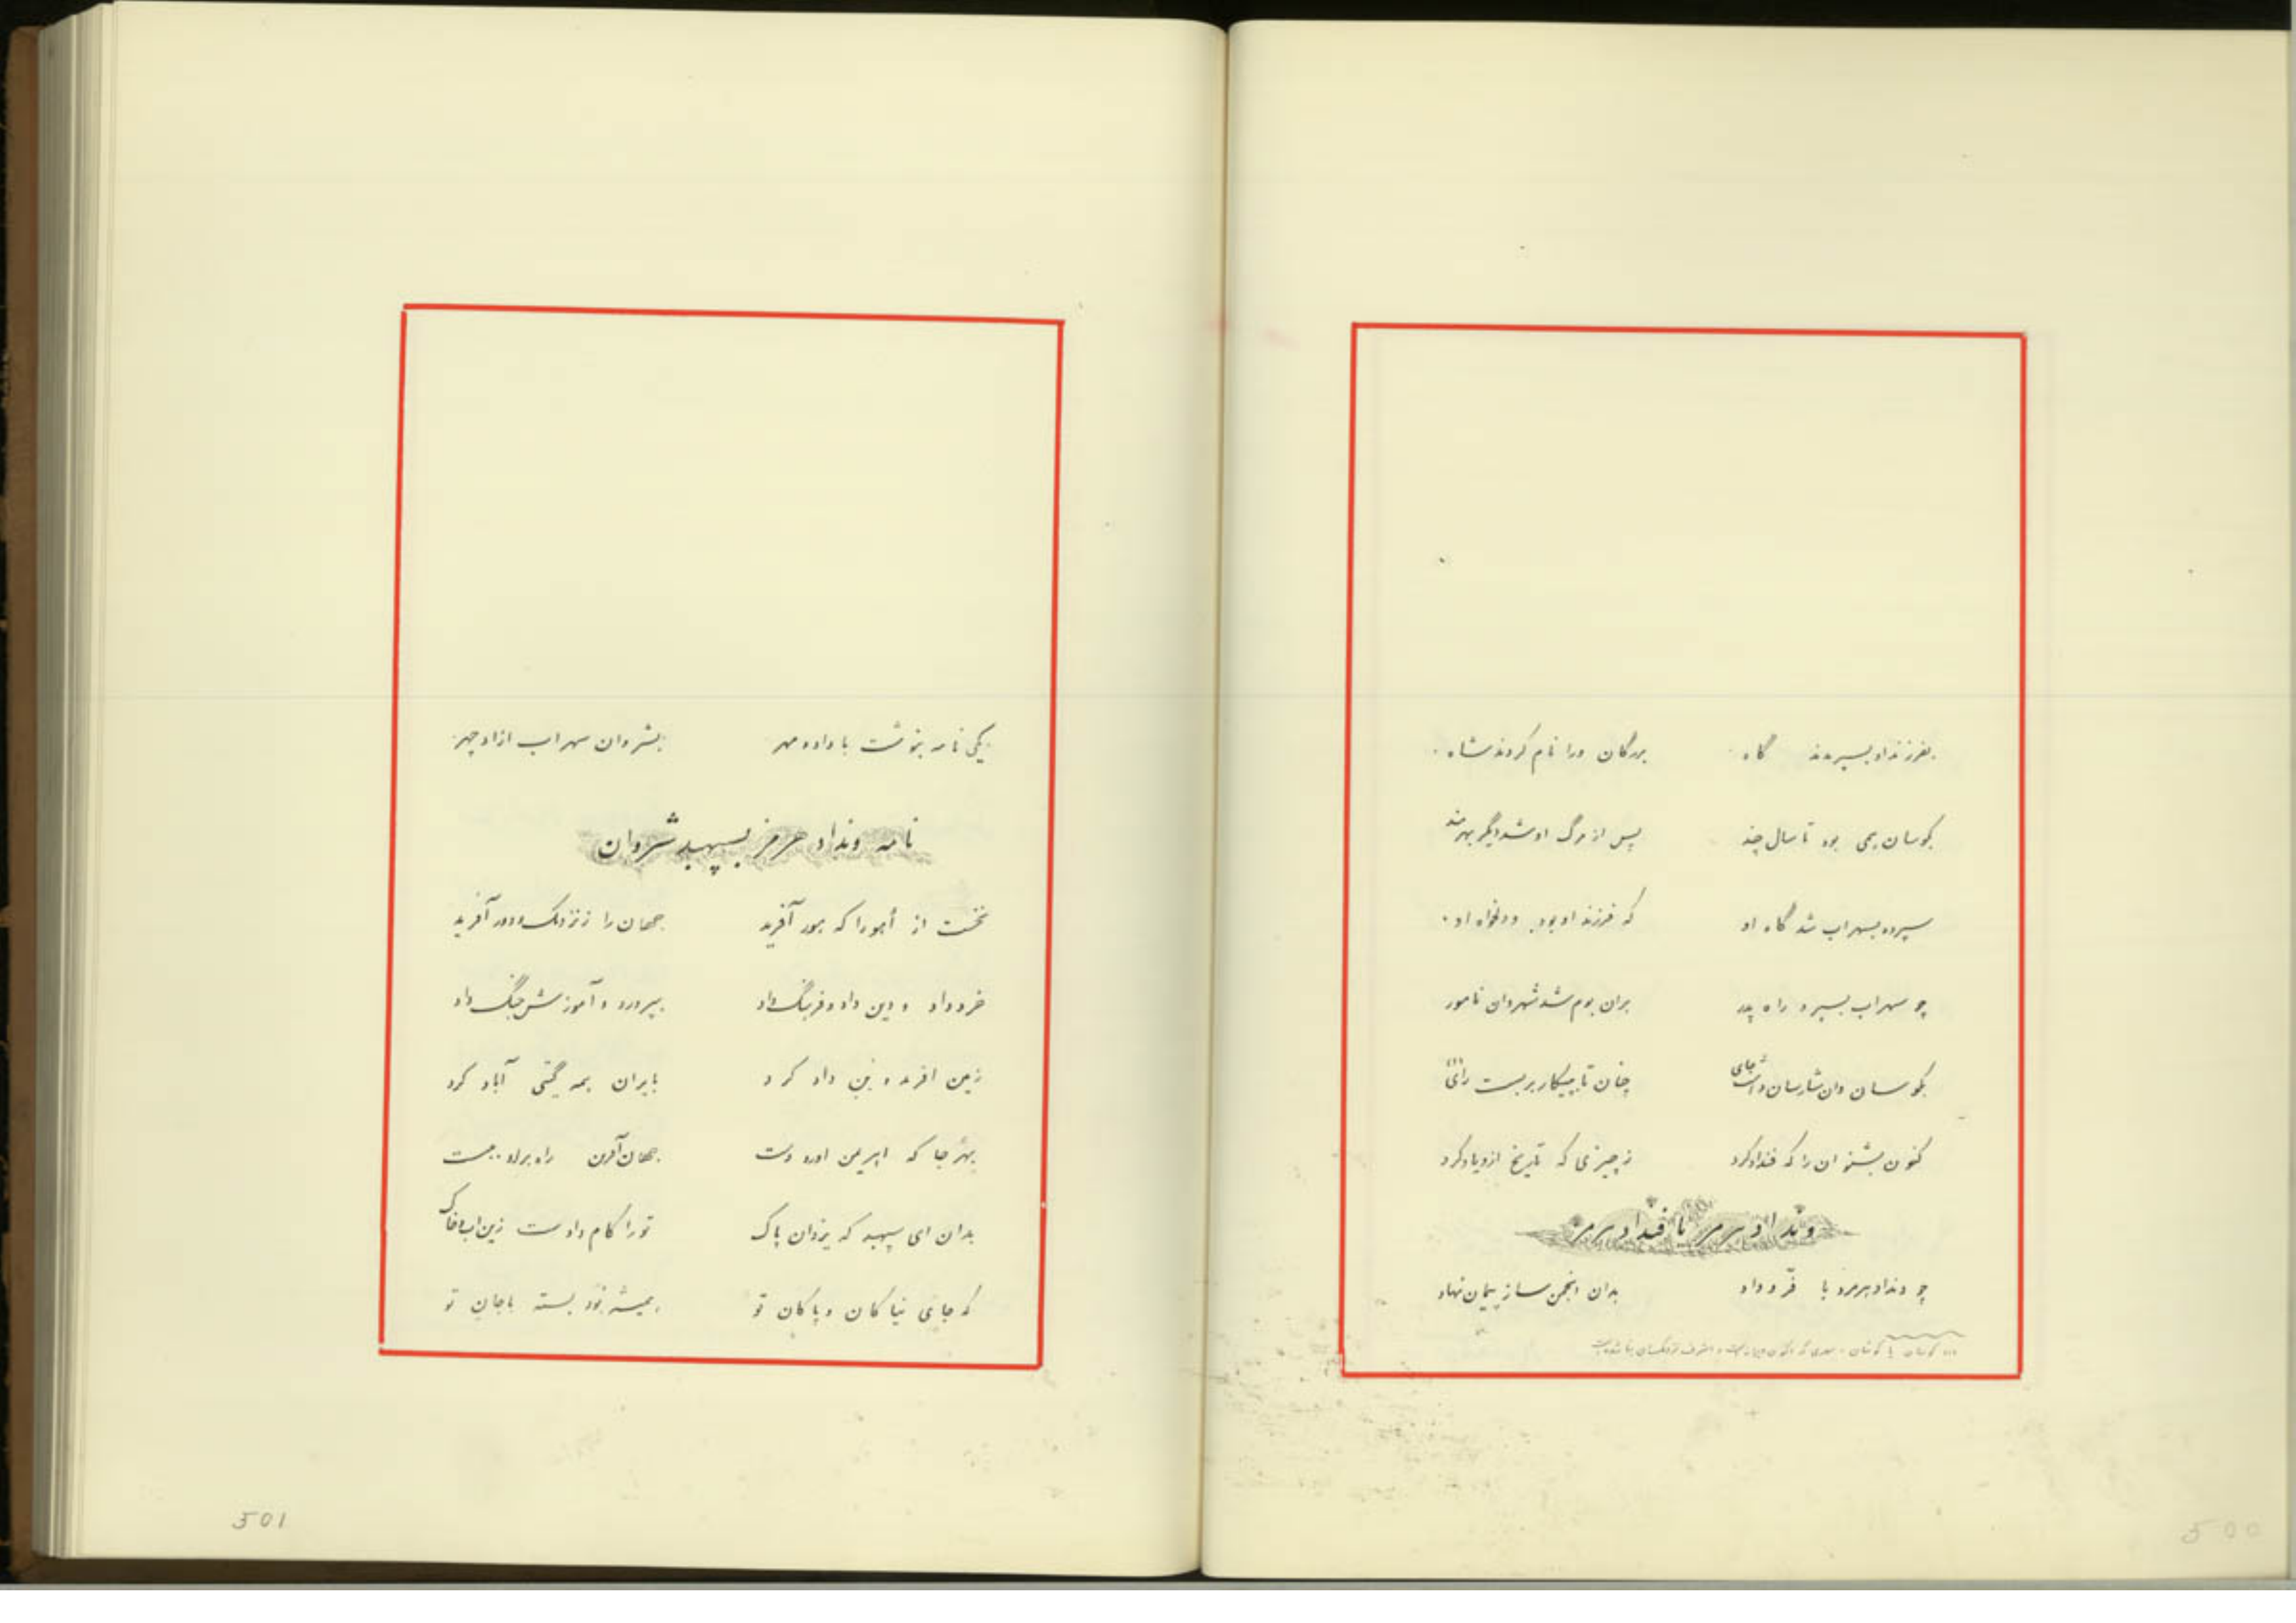 بفرزند او بسپردند گاه بزرگان ورا نام کردند شاه
بکوسان همی بود تا سال چند پس از مرگ او شد دیگر بهرمند
سپرده بسهراب شد گاه او که فرزند او بود و دلخواه او
چو سهراب بسپرد راه پدر بران بوم شد شهروان نامور
بکوسان وان شارسان داشت جای چنان تا به پیکار بربست رای
کنون بشنو ان را که فنداد کرد ز چیزی که تاریخ ازو یاد کرد
ونداد هرمز یا فنداد هرمز
چو ونداد هرمزد با فرّ و داد بدان انجمن ساز پیمان نهاد
کوسان یا کوشان
500
یکی نامه بنوشت با داد و مهر بشروان سهراب ازاد چهر
نامه ونداد هرمز بسپهبد شروان
نخست از أهورا که هور آفرید جهان را ز نزدیک و دور آفرید
خرد داد و دین داد و فرهنگ داد بپرورد و آموزش جنگ داد
زمین افرید و بن داد کرد بایران همه گیتی آباد کرد
بهر جا که اهریمن اورد دست جهان آفرین راه برلو ببست
بدان ای سپهبد که یزدان پاک تو را کام دادست زین اب و خاک
که جای نیاکان و پاکان تو همیشه بود بسته با جان تو
501